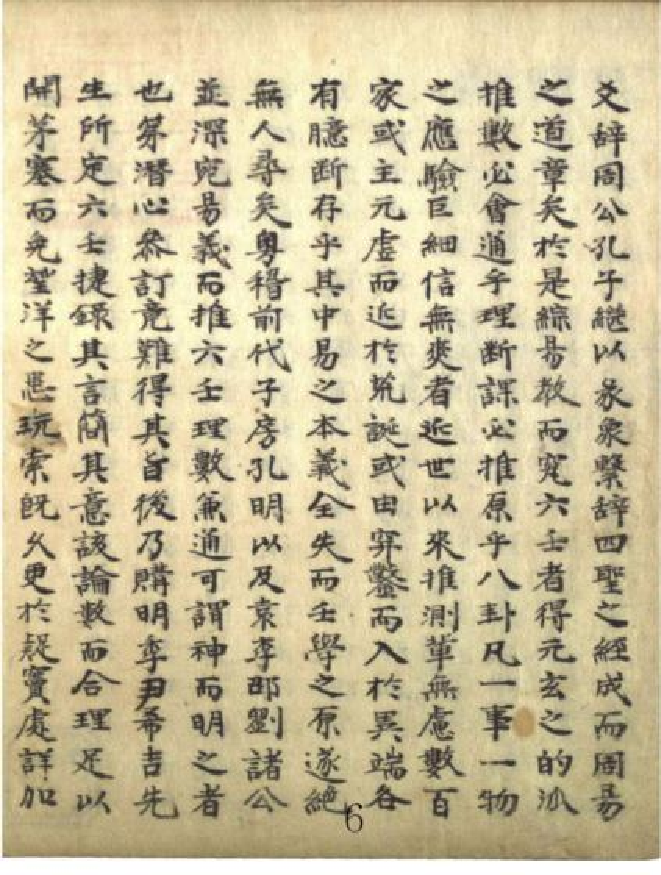 爻辞周公孔子繼以彖象繫辞四聖之經成而周易
之道章矣於是綜易教而究六壬者得元玄之的派
推數必會通乎理断課必推原乎八卦凡一事一物
之應驗巨細信無爽者近世以來推測軰無慮數百
家或主元虚而近於荒誕或由穿鑿而入於異端各
有臆断存乎其中易之本義全失而壬學之原遂絶
無人尋矣粤稽前代子房孔明以及袁李邵劉諸公
並深究易義而推六壬理數兼通可謂神而明之者
也弟潛心叅訂竟難得其旨後乃購明季尹希吉先
生所定六壬捷錄其言簡其意該論數而合理足以
開茅塞而免望洋之患玩索既久更於疑竇處詳加
6